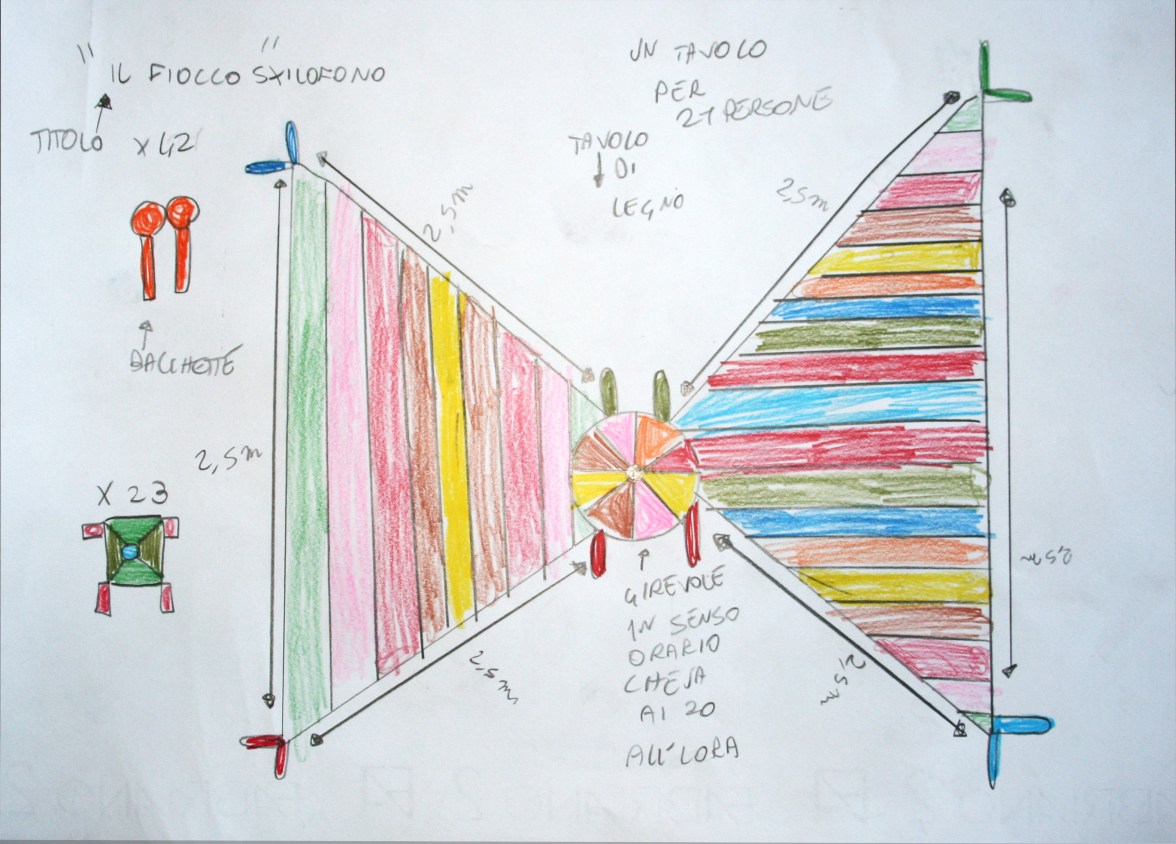 "IL FIOCCO SXILOFONO"
TITOLO
X 42
BACCHETTE
X 23
UN TAVOLO
PER
21 PERSONE
TAVOLO
DI
LEGNO
2,5 m
2,5 m
2,5 m
2,5 m
2,5 m
2,5 m
GIREVOLE
IN SENSO
ORARIO
CHEVA
AI 20
ALL'LORA